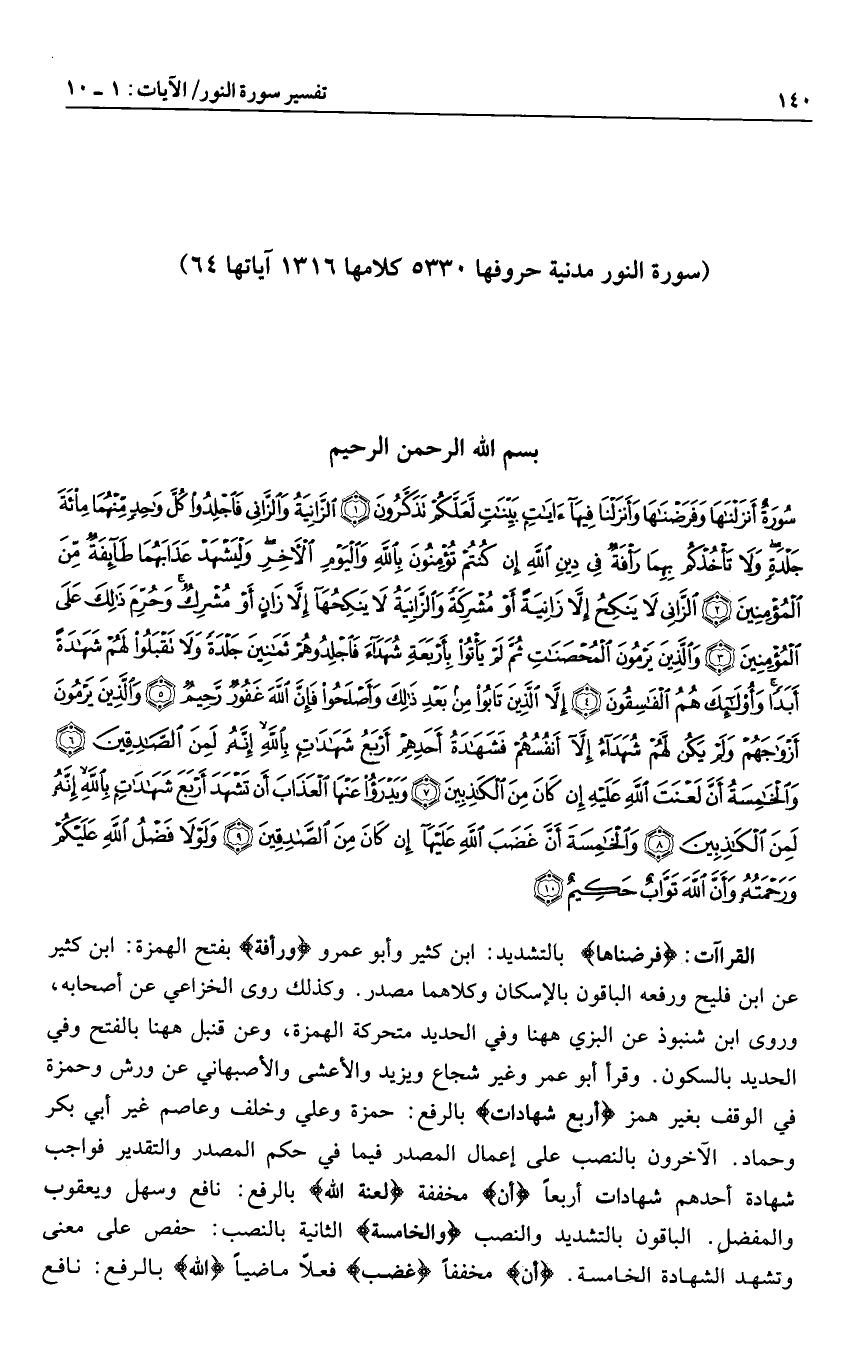 ١٤٠
تفسير سورة النور/ الآيات: ١ ـ ١٠
(سورة النور مدنية حروفها ٥٣٣٠ كلامها ١٣١٦ آياتها ٦٤)
بسم الله الرحمن الرحيم
سُورَةٌ أَنزَلْنَٰهَا وَفَرَضْنَٰهَا وَأَنزَلْنَا فِيهَآ ءَايَٰتٍۭ بَيِّنَٰتٍ لَّعَلَّكُمْ تَذَكَّرُونَ ﴿١﴾ ٱلزَّانِيَةُ وَٱلزَّانِى فَٱجْلِدُوا۟ كُلَّ وَٰحِدٍ مِّنْهُمَا مِا۟ئَةَ
جَلْدَةٍ ۖ وَلَا تَأْخُذْكُم بِهِمَا رَأْفَةٌ فِى دِينِ ٱللَّهِ إِن كُنتُمْ تُؤْمِنُونَ بِٱللَّهِ وَٱلْيَوْمِ ٱلْءَاخِرِ ۖ وَلْيَشْهَدْ عَذَابَهُمَا طَآئِفَةٌ مِّنَ
ٱلْمُؤْمِنِينَ ﴿٢﴾ ٱلزَّانِى لَا يَنكِحُ إِلَّا زَانِيَةً أَوْ مُشْرِكَةً وَٱلزَّانِيَةُ لَا يَنكِحُهَآ إِلَّا زَانٍ أَوْ مُشْرِكٌ ۚ وَحُرِّمَ ذَٰلِكَ عَلَى
ٱلْمُؤْمِنِينَ ﴿٣﴾ وَٱلَّذِينَ يَرْمُونَ ٱلْمُحْصَنَٰتِ ثُمَّ لَمْ يَأْتُوا۟ بِأَرْبَعَةِ شُهَدَآءَ فَٱجْلِدُوهُمْ ثَمَٰنِينَ جَلْدَةً وَلَا تَقْبَلُوا۟ لَهُمْ شَهَٰدَةً
أَبَدًا ۚ وَأُو۟لَٰٓئِكَ هُمُ ٱلْفَٰسِقُونَ ﴿٤﴾ إِلَّا ٱلَّذِينَ تَابُوا۟ مِنۢ بَعْدِ ذَٰلِكَ وَأَصْلَحُوا۟ فَإِنَّ ٱللَّهَ غَفُورٌ رَّحِيمٌ ﴿٥﴾ وَٱلَّذِينَ يَرْمُونَ
أَزْوَٰجَهُمْ وَلَمْ يَكُن لَّهُمْ شُهَدَآءُ إِلَّآ أَنفُسُهُمْ فَشَهَٰدَةُ أَحَدِهِمْ أَرْبَعُ شَهَٰدَٰتٍۭ بِٱللَّهِ ۙ إِنَّهُۥ لَمِنَ ٱلصَّٰدِقِينَ ﴿٦﴾
وَٱلْخَٰمِسَةُ أَنَّ لَعْنَتَ ٱللَّهِ عَلَيْهِ إِن كَانَ مِنَ ٱلْكَٰذِبِينَ ﴿٧﴾ وَيَدْرَؤُا۟ عَنْهَا ٱلْعَذَابَ أَن تَشْهَدَ أَرْبَعَ شَهَٰدَٰتٍۭ بِٱللَّهِ ۙ إِنَّهُۥ
لَمِنَ ٱلْكَٰذِبِينَ ﴿٨﴾ وَٱلْخَٰمِسَةَ أَنَّ غَضَبَ ٱللَّهِ عَلَيْهَآ إِن كَانَ مِنَ ٱلصَّٰدِقِينَ ﴿٩﴾ وَلَوْلَا فَضْلُ ٱللَّهِ عَلَيْكُمْ
وَرَحْمَتُهُۥ وَأَنَّ ٱللَّهَ تَوَّابٌ حَكِيمٌ ﴿١٠﴾
القراآت: ﴿فرضناها﴾ بالتشديد: ابن كثير وأبو عمرو ﴿ورأفة﴾ بفتح الهمزة: ابن كثير
عن ابن فليح ورفعه الباقون بالإسكان وكلاهما مصدر. وكذلك روى الخزاعي عن أصحابه،
وروى ابن شنبوذ عن البزي ههنا وفي الحديد متحركة الهمزة، وعن قنبل ههنا بالفتح وفي
الحديد بالسكون. وقرأ أبو عمر وغير شجاع ويزيد والأعشى والأصبهاني عن ورش وحمزة
في الوقف بغير همز ﴿أربع شهادات﴾ بالرفع: حمزة وعلي وخلف وعاصم غير أبي بكر
وحماد. الآخرون بالنصب على إعمال المصدر فيما في حكم المصدر والتقدير فواجب
شهادة أحدهم شهادات أربعاً ﴿أن﴾ مخففة ﴿لعنة الله﴾ بالرفع: نافع وسهل ويعقوب
والمفضل. الباقون بالتشديد والنصب ﴿والخامسة﴾ الثانية بالنصب: حفص على معنى
وتشهد الشهادة الخامسة. ﴿أن﴾ مخففاً ﴿غضب﴾ فعلاً ماضياً ﴿الله﴾ بالرفع: نافع